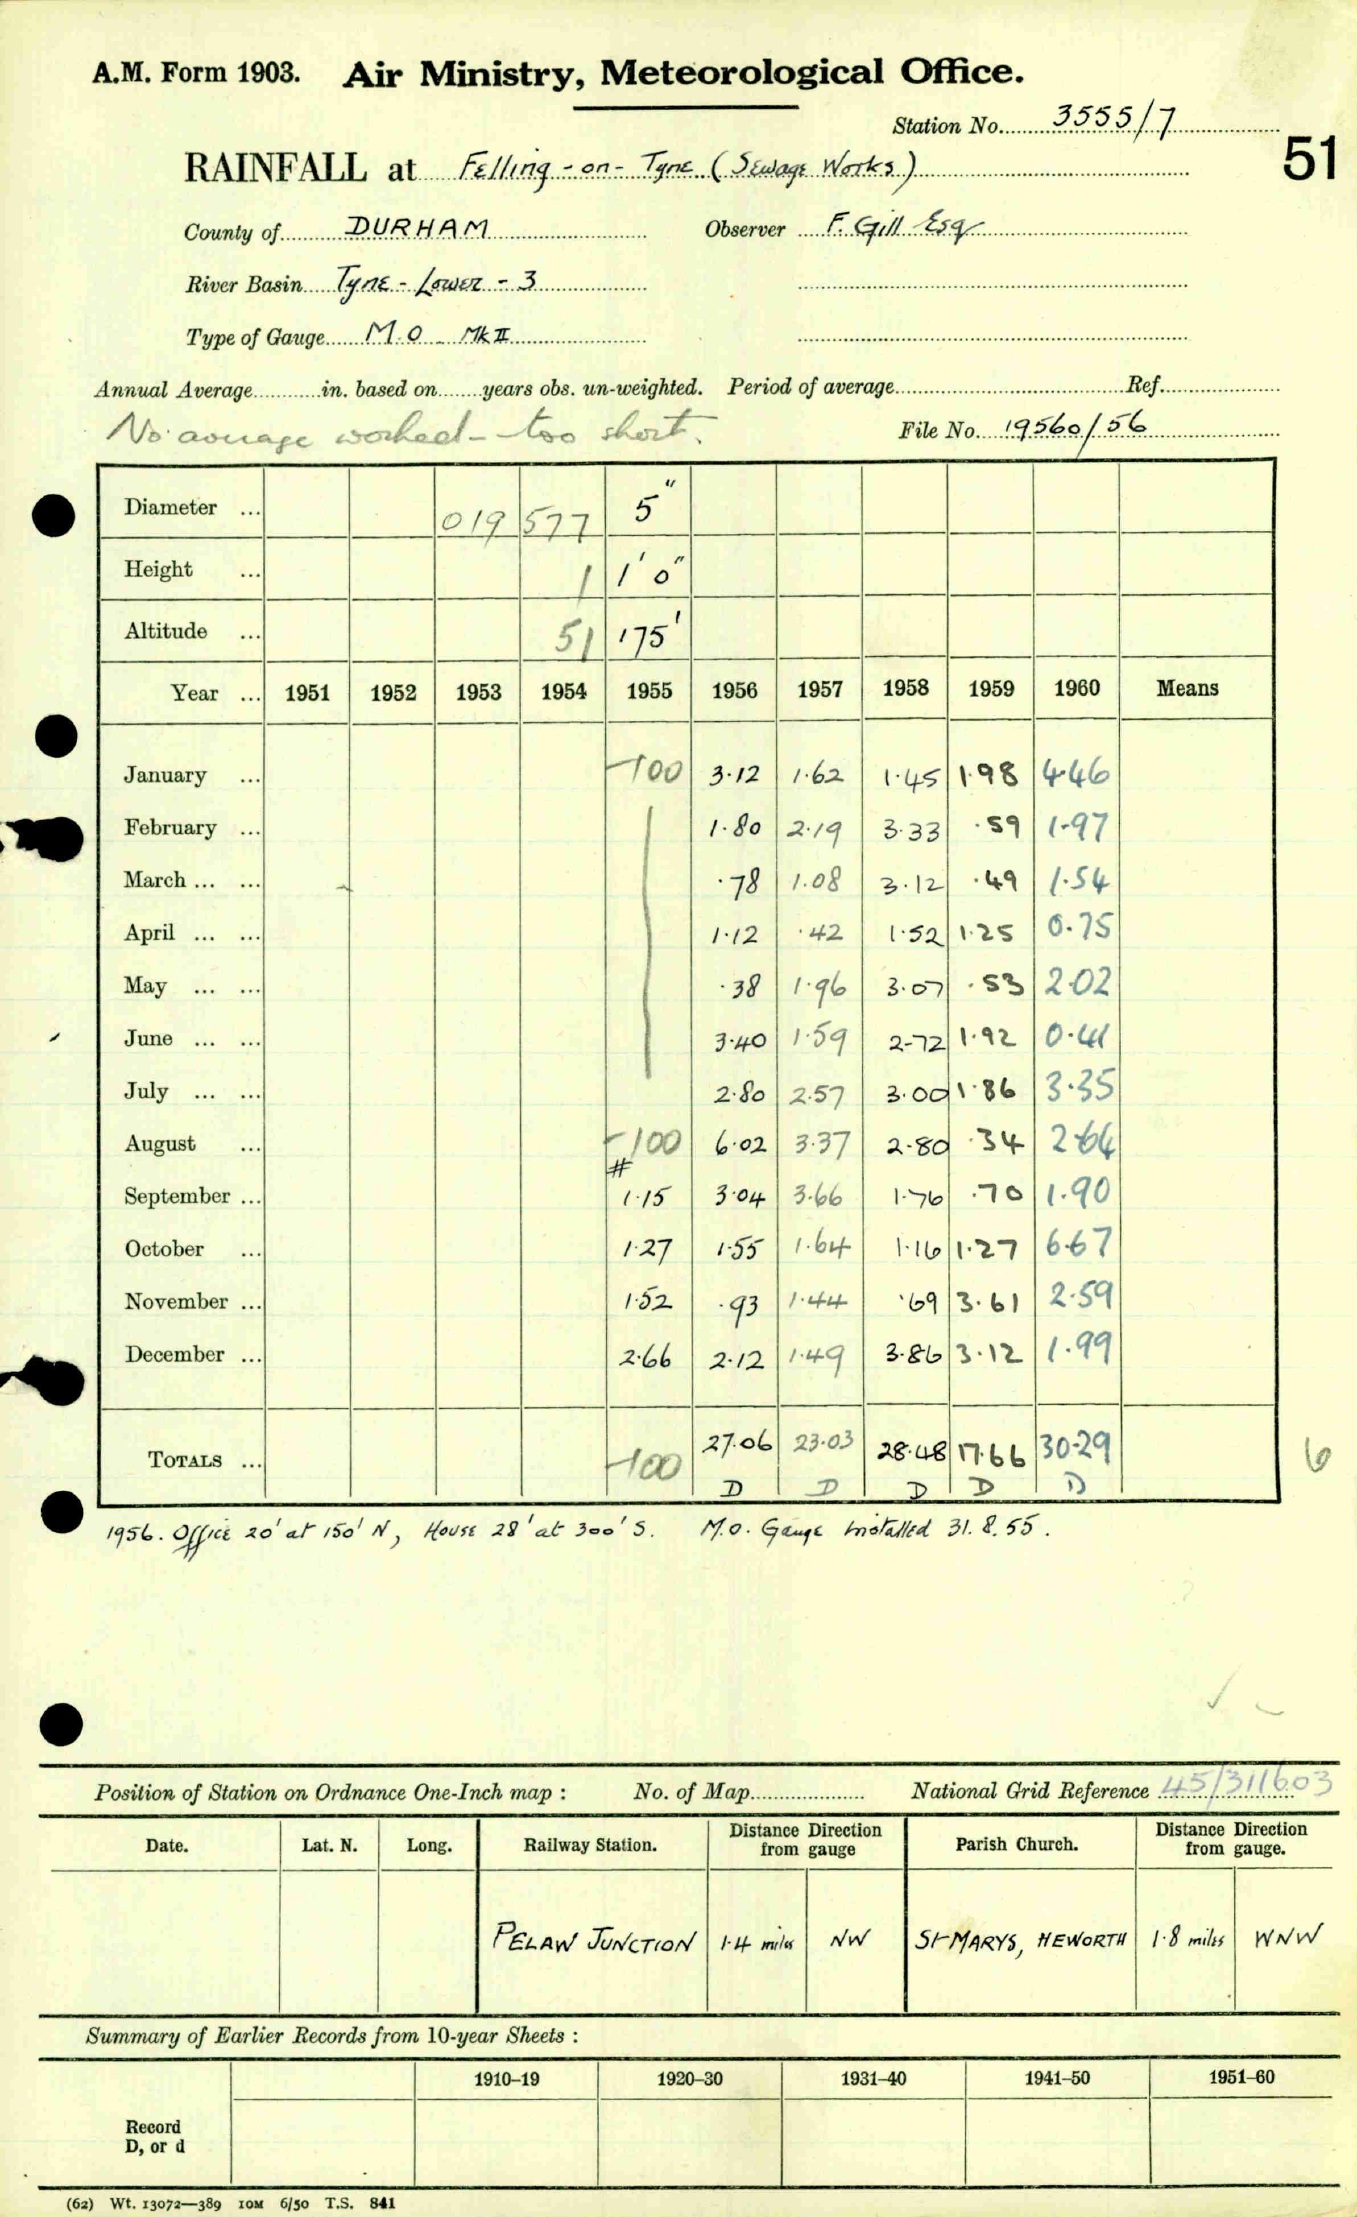 A.M. Form 1903. Air Ministry, Meteorological Office.
Station No. 3555/7
51
RAINFALL at Felling-on-Tyne (Sewage Works)
County of DURHAM Observer F. Gill Esq
River Basin Tyne - Lower - 3
Type of Gauge M.O. Mk II
Annual Average in. based on years obs. un-weighted. Period of average Ref.
No average worked - too short. File No. 19560/56
Diameter ... 019 577 5"
Height ... 1 1' 0"
Altitude ... 51 175'
Year ... 1951 1952 1953 1954 1955 1956 1957 1958 1959 1960 Means
January ... -100 3.12 1.62 1.45 1.98 4.46
February ... 1.80 2.19 3.33 .59 1.97
March ... ... .78 1.08 3.12 .49 1.54
April ... ... 1.12 .42 1.52 1.25 0.75
May ... ... .38 1.96 3.07 .53 2.02
June ... ... 3.40 1.59 2.72 1.92 0.41
July ... ... 2.80 2.57 3.00 1.86 3.35
August ... -100 6.02 3.37 2.80 .34 2.64
#
September ... 1.15 3.04 3.66 1.76 .70 1.90
October ... 1.27 1.55 1.64 1.16 1.27 6.67
November ... 1.52 .93 1.44 .69 3.61 2.59
December ... 2.66 2.12 1.49 3.86 3.12 1.99
TOTALS ... -100 27.06 23.03 28.48 17.66 30.29 6
D D D D D
1956. Office 20' at 150' N, House 28' at 300' S. M.O. Gauge installed 31.8.55.
Position of Station on Ordnance One-Inch map : No. of Map National Grid Reference 45/311603
Date. Lat. N. Long. Railway Station. Distance Direction from gauge Parish Church. Distance Direction from gauge.
PELAW JUNCTION 1.4 miles NW St MARYS, HEWORTH 1.8 miles WNW
Summary of Earlier Records from 10-year Sheets :
1910–19 1920–30 1931–40 1941–50 1951–60
Record
D, or d
(62) Wt. 13072—389 10M 6/50 T.S. 841